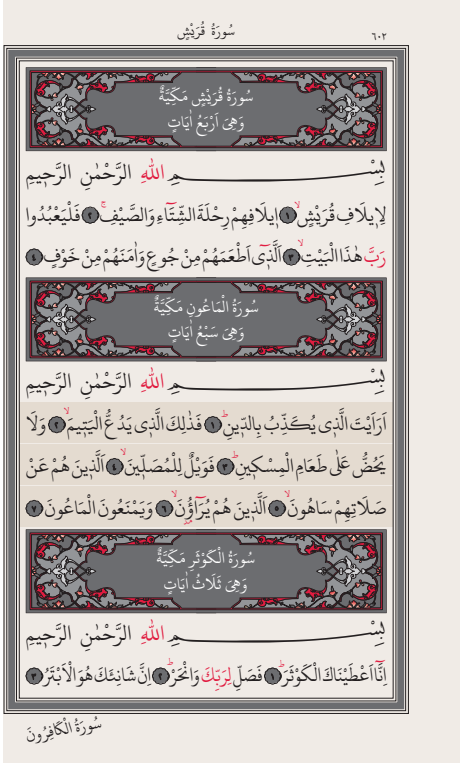 سُورَةُ قُرَيْشٍ
٦٠٢
سُورَةُ قُرَيْشٍ مَكِّيَّةٌ
وَهِيَ اَرْبَعُ اٰيَاتٍ
بِسْمِ اللّٰهِ الرَّحْمٰنِ الرَّحٖيمِ
لِاٖيلَافِ قُرَيْشٍۙ ١ اٖيلَافِهِمْ رِحْلَةَ الشِّتَٓاءِ وَالصَّيْفِۚ ٢ فَلْيَعْبُدُوا
رَبَّ هٰذَا الْبَيْتِۙ ٣ اَلَّذٖٓى اَطْعَمَهُمْ مِنْ جُوعٍ وَاٰمَنَهُمْ مِنْ خَوْفٍ ٤
سُورَةُ الْمَاعُونِ مَكِّيَّةٌ
وَهِيَ سَبْعُ اٰيَاتٍ
بِسْمِ اللّٰهِ الرَّحْمٰنِ الرَّحٖيمِ
اَرَاَيْتَ الَّذٖى يُكَذِّبُ بِالدّٖينِؕ ١ فَذٰلِكَ الَّذٖى يَدُعُّ الْيَتٖيمَۙ ٢ وَلَا
يَحُضُّ عَلٰى طَعَامِ الْمِسْكٖينِؕ ٣ فَوَيْلٌ لِلْمُصَلّٖينَۙ ٤ اَلَّذٖينَ هُمْ عَنْ
صَلَاتِهِمْ سَاهُونَۙ ٥ اَلَّذٖينَ هُمْ يُرَٓاؤُ۫نَۙ ٦ وَيَمْنَعُونَ الْمَاعُونَ ٧
سُورَةُ الْكَوْثَرِ مَكِّيَّةٌ
وَهِيَ ثَلَاثُ اٰيَاتٍ
بِسْمِ اللّٰهِ الرَّحْمٰنِ الرَّحٖيمِ
اِنَّٓا اَعْطَيْنَاكَ الْكَوْثَرَؕ ١ فَصَلِّ لِرَبِّكَ وَانْحَرْؕ ٢ اِنَّ شَانِئَكَ هُوَ الْاَبْتَرُ ٣
سُورَةُ الْكَافِرُونَ